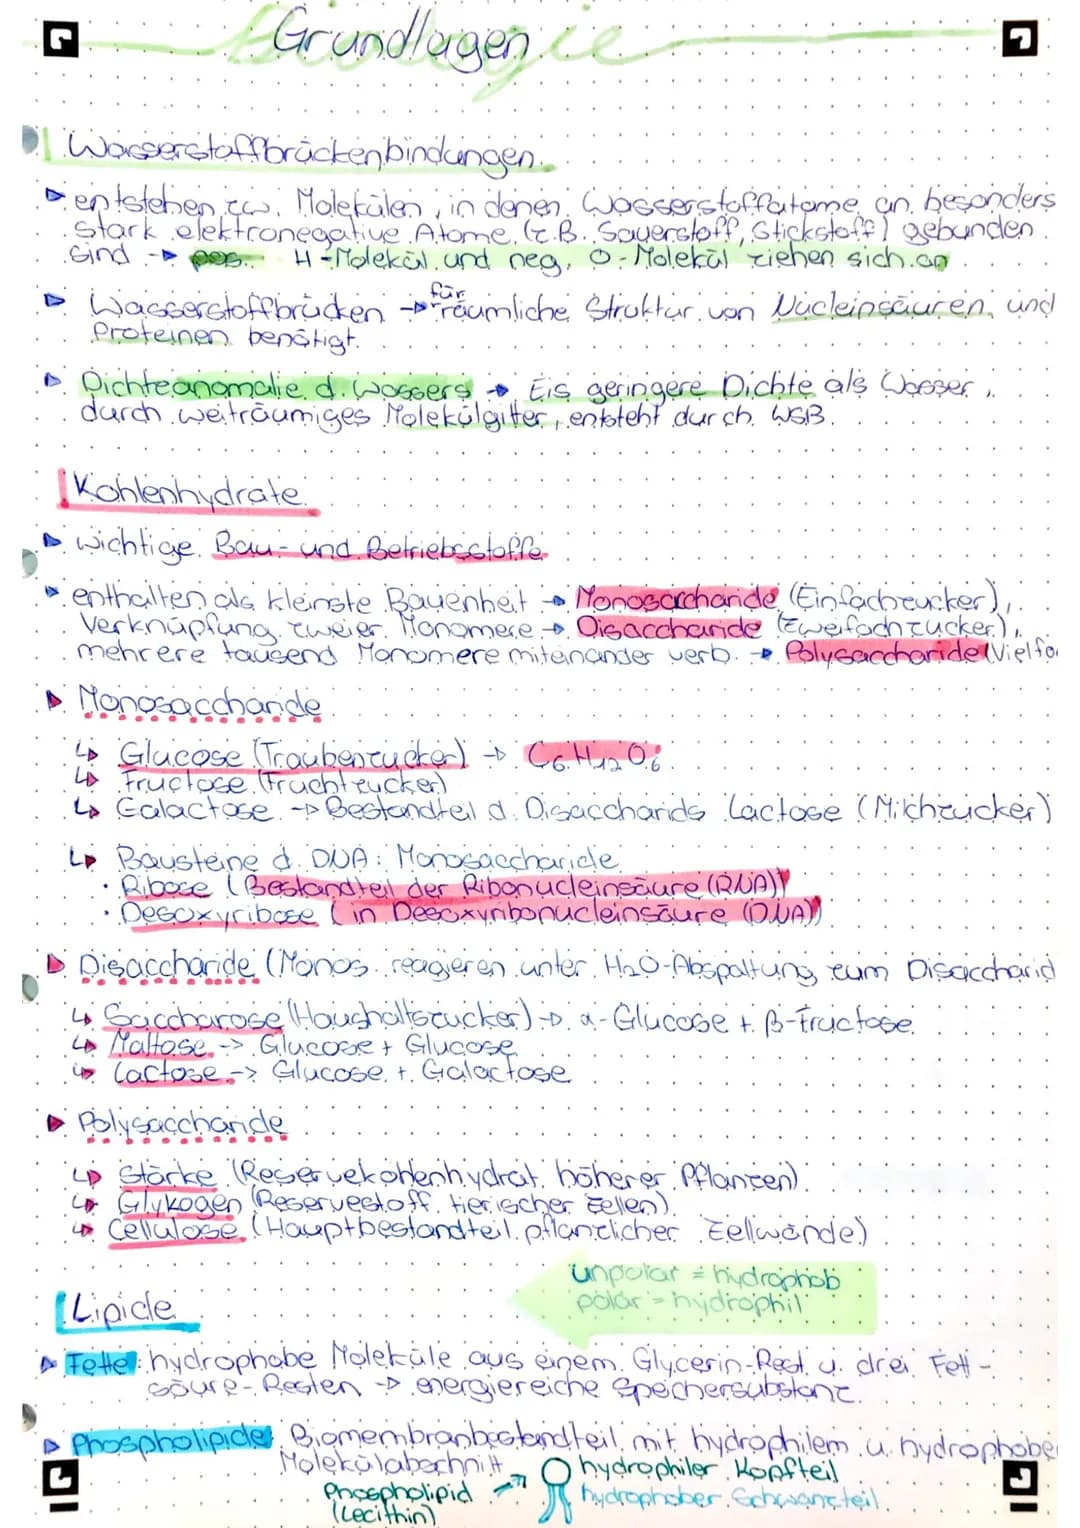 Biologie
Grundlagen
Wasserstoffbrückenbindungen
entstehen zw. Molekülen, in denen Wasserstoffatome an besonders
stark elektronegative Atome (z.B. Sauerstoff, Stickstoff) gebunden
sind → pos. H-Molekül und neg. O-Molekül ziehen sich an
Wasserstoffbrücken → für räumliche Struktur von Nucleinsäuren und
Proteinen benötigt.
Dichteanomalie d. Wassers → Eis geringere Dichte als Wasser,
durch weiträumiges Molekülgitter, entsteht durch WSB.
Kohlenhydrate
wichtige Bau- und Betriebsstoffe
enthalten als kleinste Baueinheit → Monosaccharide (Einfachzucker),
Verknüpfung zweier Monomere → Disaccharide (Zweifachzucker),
mehrere tausend Monomere miteinander verb. → Polysaccharide (Vielfa
Monosaccharide
↳ Glucose (Traubenzucker) → C₆H₁₂O₆
↳ Fructose (Fruchtzucker)
↳ Galactose → Bestandteil d. Disaccharids Lactose (Milchzucker)
↳ Bausteine d. DNA: Monosaccharide
· Ribose (Bestandteil der Ribonucleinsäure (RNA))
· Desoxyribose (in Desoxyribonucleinsäure (DNA))
Disaccharide (Monos. reagieren unter H₂O-Abspaltung zum Disaccharid
↳ Saccharose (Haushaltszucker) → α-Glucose + β-Fructose
↳ Maltose -> Glucose + Glucose
↳ Lactose -> Glucose + Galactose
Polysaccharide
↳ Stärke (Reservekohlenhydrat höherer Pflanzen)
↳ Glykogen (Reservestoff tierischer Zellen)
↳ Cellulose (Hauptbestandteil pflanzlicher Zellwände)
unpolar = hydrophob
polar = hydrophil
Lipide
Fette: hydrophobe Moleküle aus einem Glycerin-Rest u. drei Fett-
säure-Resten → energiereiche Speichersubstanz
Phospholipide: Biomembranbestandteil mit hydrophilem u. hydrophobe
Molekülabschnitt
hydrophiler Kopfteil
Phospholipid →
hydrophober Schwanzteil
(Lecithin)